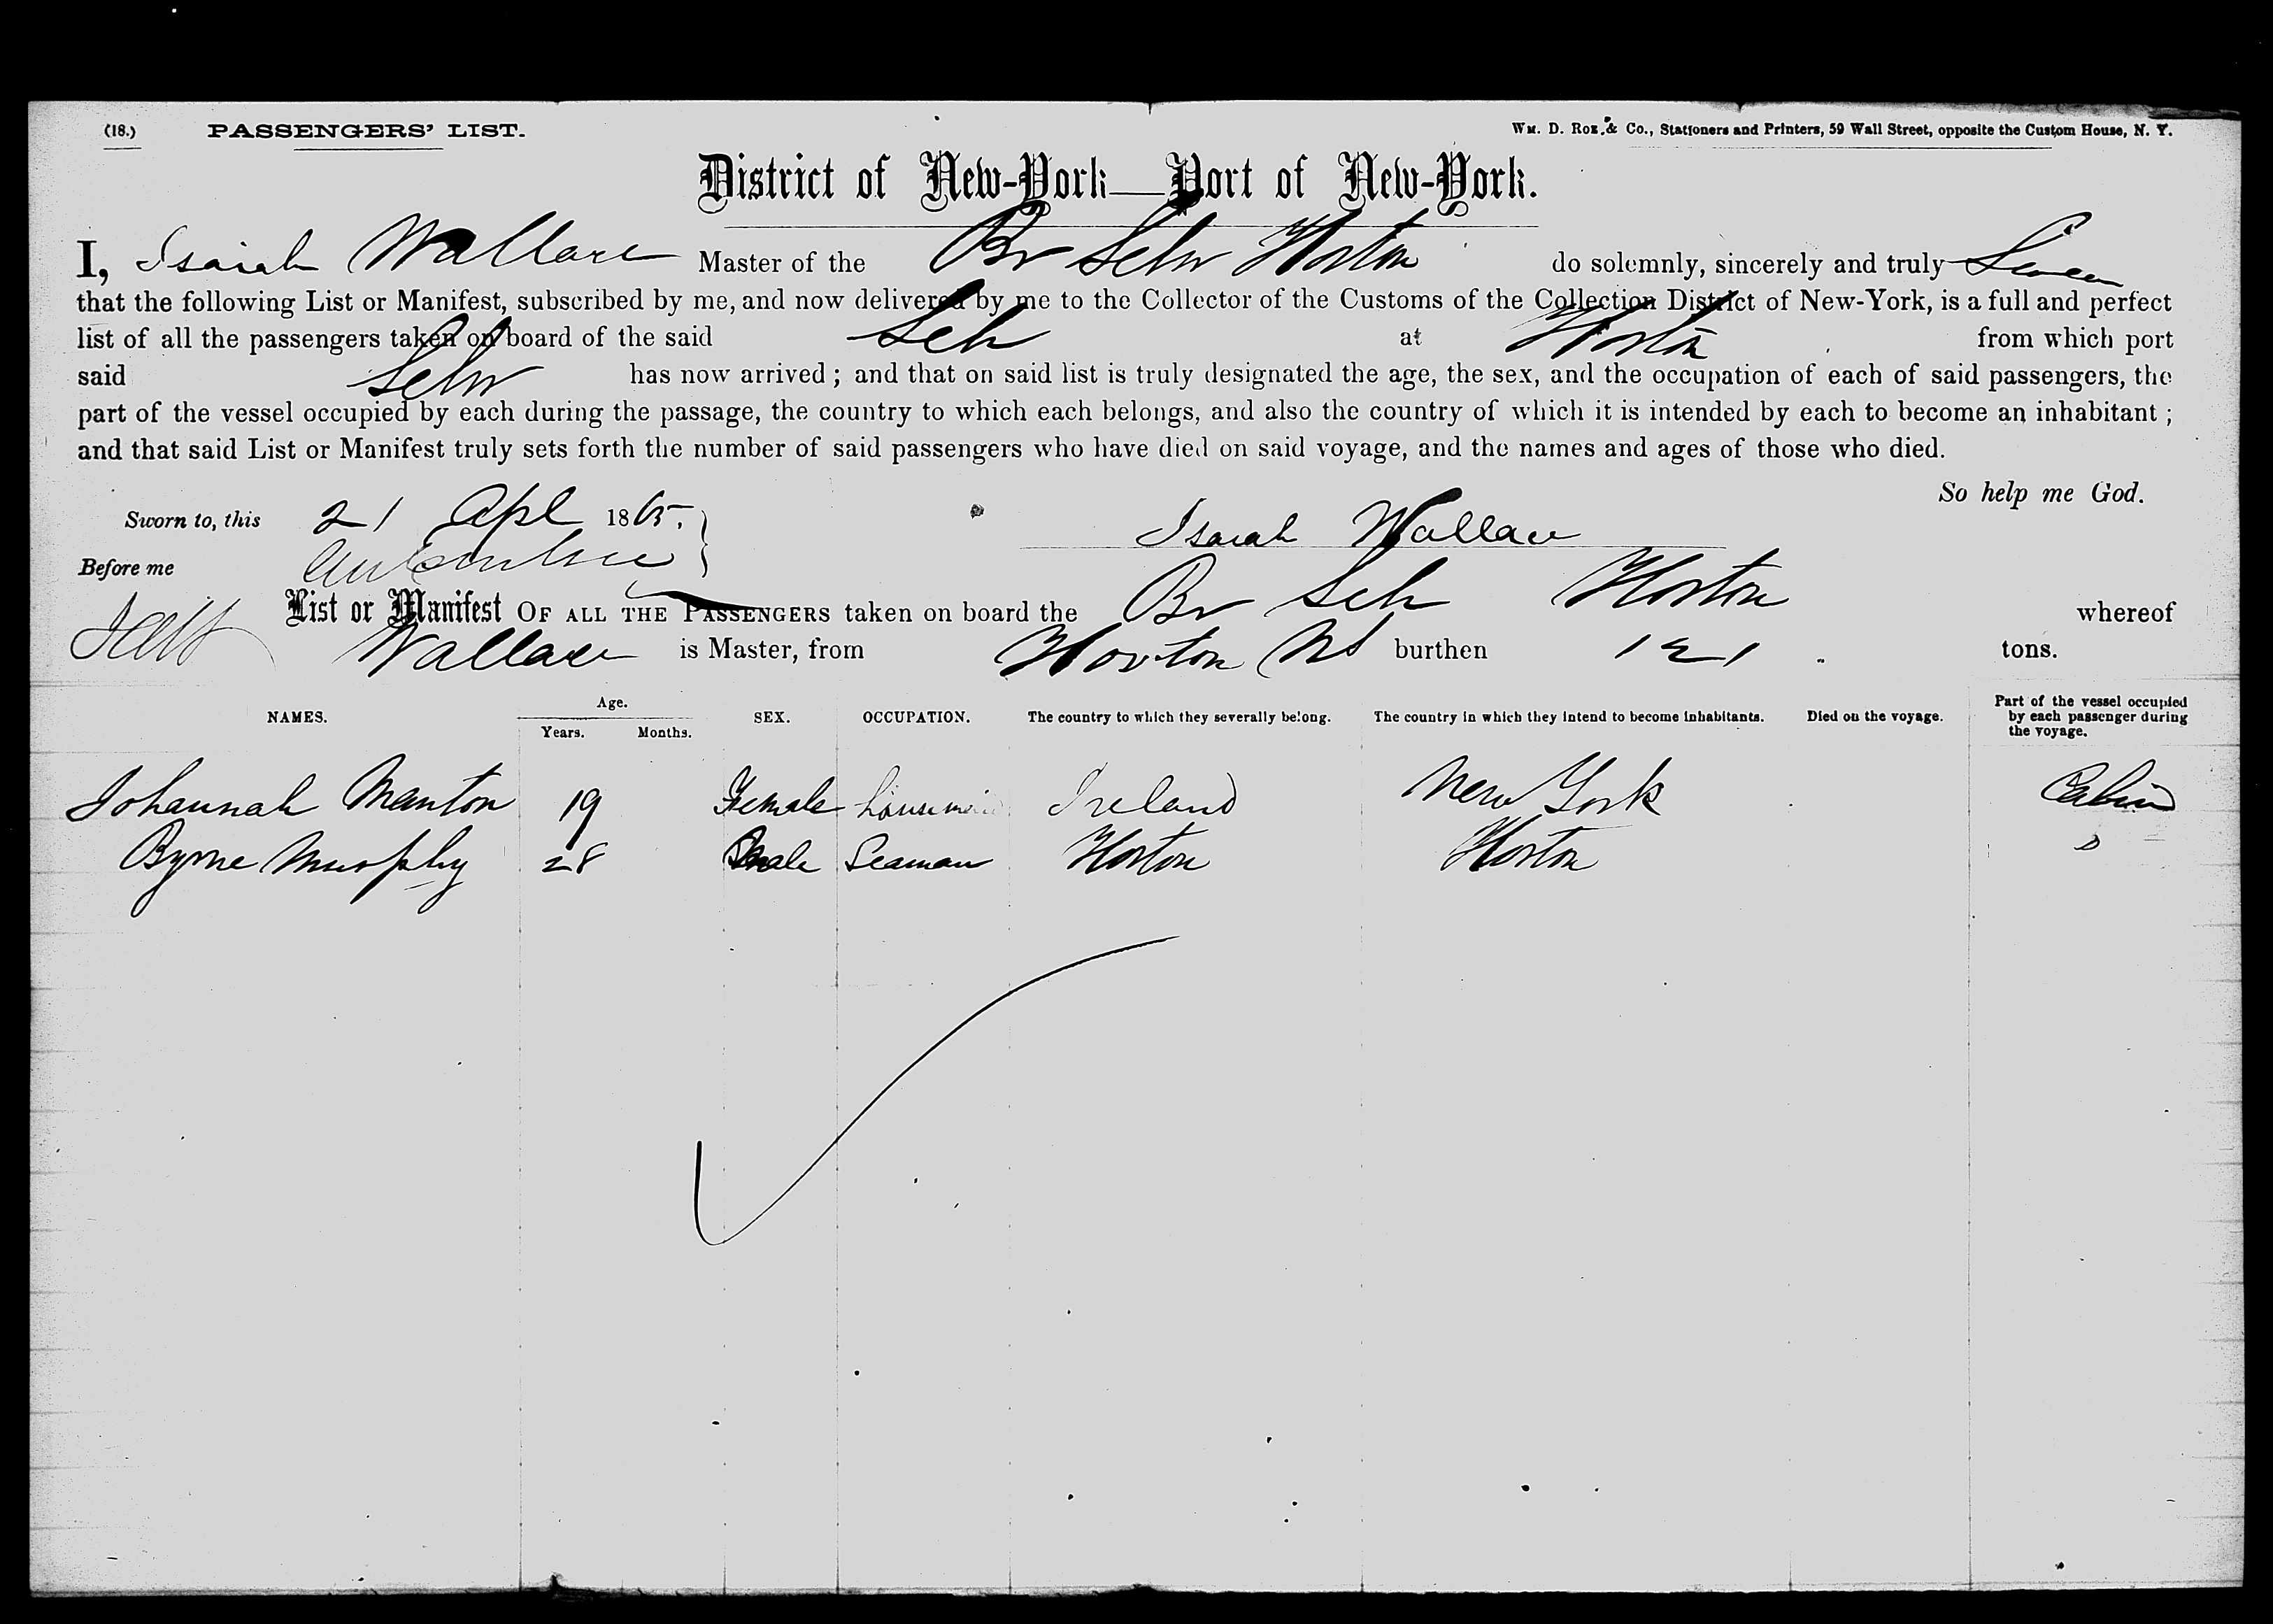 (18.) PASSENGERS' LIST. Wm. D. Roe & Co., Stationers and Printers, 59 Wall Street, opposite the Custom House, N. Y.
District of New-York—Port of New-York.
I, Isaiah Wallace Master of the Br Schr Horton do solemnly, sincerely and truly Swear
that the following List or Manifest, subscribed by me, and now delivered by me to the Collector of the Customs of the Collection District of New-York, is a full and perfect
list of all the passengers taken on board of the said Sch at Horton from which port
said Schr has now arrived; and that on said list is truly designated the age, the sex, and the occupation of each of said passengers, the
part of the vessel occupied by each during the passage, the country to which each belongs, and also the country of which it is intended by each to become an inhabitant;
and that said List or Manifest truly sets forth the number of said passengers who have died on said voyage, and the names and ages of those who died.
So help me God.
Sworn to, this 21 Apl 1865. Isaiah Wallace
Before me
List or Manifest OF ALL THE PASSENGERS taken on board the Br Sch Horton whereof
Wallace is Master, from Horton NS burthen 121 tons.
NAMES. Age. Years. Months. SEX. OCCUPATION. The country to which they severally belong. The country in which they intend to become inhabitants. Died on the voyage. Part of the vessel occupied by each passenger during the voyage.
Johannah Manton 19 Female housemaid Ireland New York Cabin
Byrne Murphy 28 Male Seaman Horton Horton